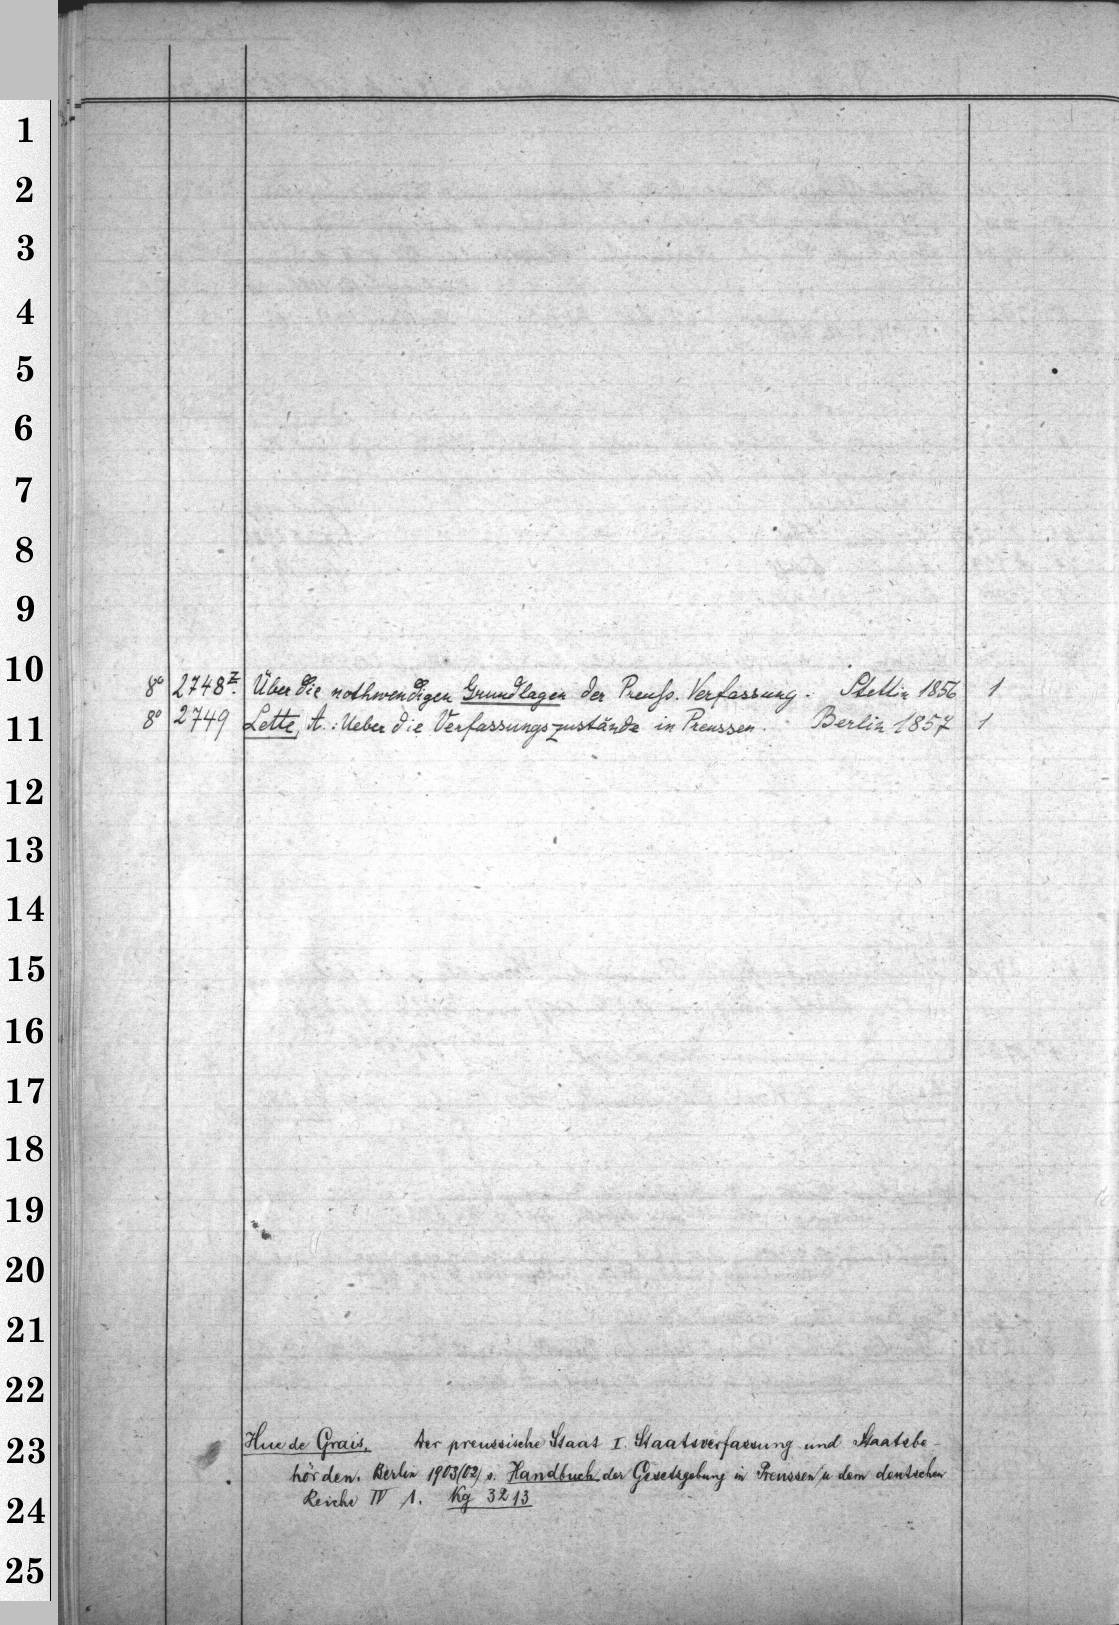 1
2
3
4
5
6
7
8
9
10
8° 2748ᶻ. Über die nothwendigen Grundlagen der Preuss. Verfassung. Stettin 1856 1
8° 2749 Lette, A.: Ueber die Verfassungszustände in Preussen. Berlin 1857 1
11
12
13
14
15
16
17
18
19
20
21
22
Hue de Grais, Der preussische Staat I. Staatsverfassung und Staatsbe-
23
hörden. Berlin 1903(02) s. Handbuch der Gesetzgebung in Preussen u dem deutschen
Reiche IV 1. Kg 3213
24
25